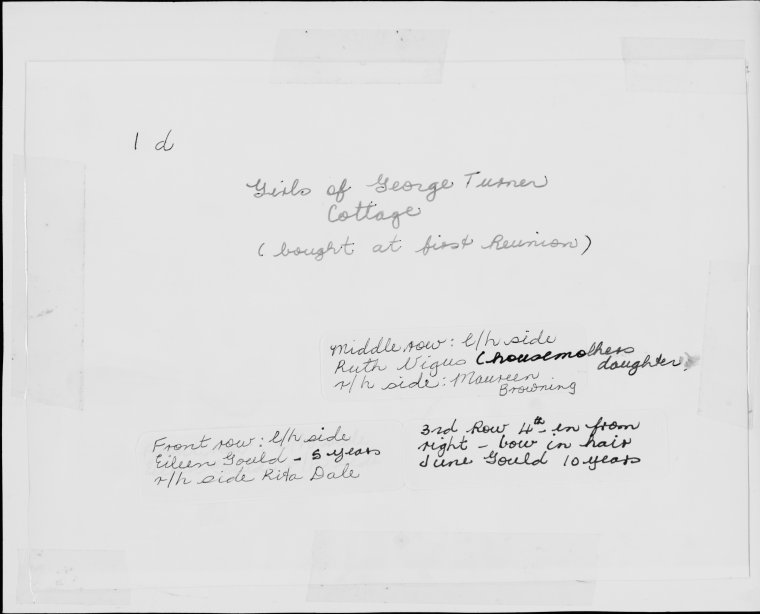 1 d
Girls of George Turner
Cottage
(bought at first Reunion)
Middle row: l/h side
Ruth Vigus (housemothers
daughter)
r/h side: Maureen
Browning
Front row: l/h side
Eileen Gould - 5 years
r/h side Rita Dale
3rd Row 4th in from
right - bow in hair
June Gould 10 years